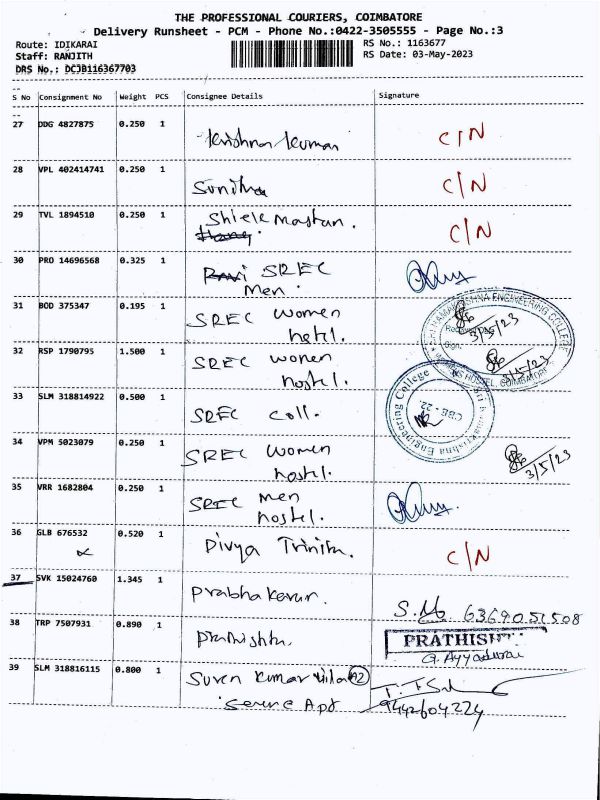 THE PROFESSIONAL COURIERS, COIMBATORE
Delivery Runsheet - PCM - Phone No.:0422-3505555 - Page No.:3
Route: IDIKARAI
RS No.: 1163677
Staff: RANJITH
RS Date: 03-May-2023
DRS No.: DCJB116367703
S No Consignment No Weight PCS Consignee Details Signature
27 DDG 4827875 0.250 1 Krishna kumar C/N
28 VPL 402414741 0.250 1 Sunitha C/N
29 TVL 1894510 0.250 1 Shiele Mastan. C/N
30 PRO 14696568 0.325 1 SREC
Men.
31 BOD 375347 0.195 1 SREC women
hetel.
3/5/23
32 RSP 1790795 1.500 1 SREC women
hostel.
3/5/23
33 SLM 318814922 0.500 1 SREC coll.
Engineering College
CBE - 22.
34 VPM 5023079 0.250 1 SREC women
hostel.
3/5/23
35 VRR 1682804 0.250 1 SREC men
hostel.
36 GLB 676532 0.520 1 Divya C/N
37 SVK 15024760 1.345 1 Prabhakaran. S.M. 6369051508
38 TRP 7507931 0.890 1
PRATHISH
G. Ayyadurai
39 SLM 318816115 0.800 1 Suren Kumar A2
Apt 9442604224